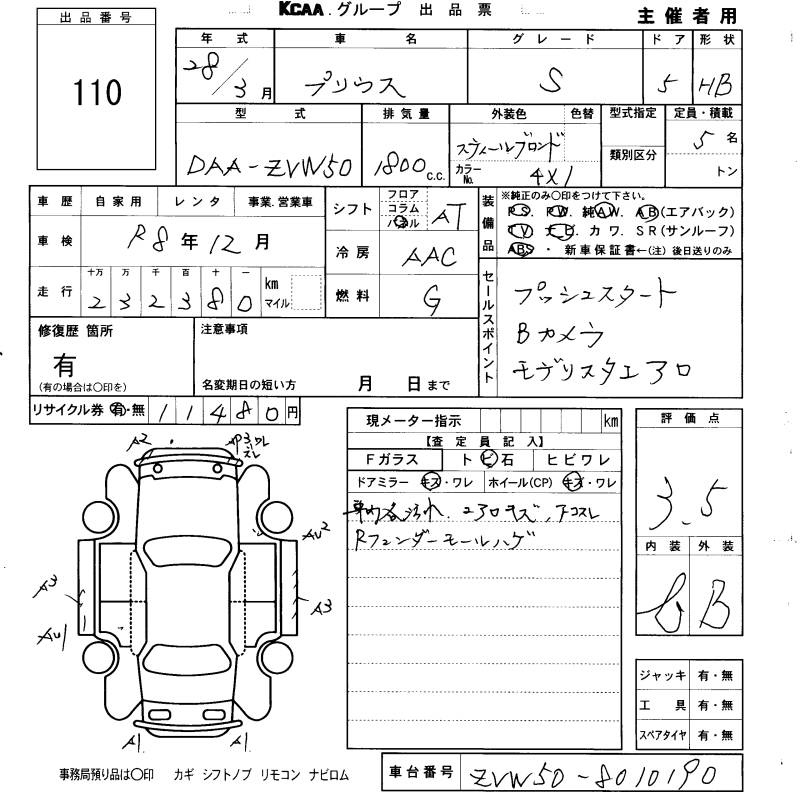 KCAA.グループ 出品票
主催者用
出品番号
110
年式 車名 グレード ドア 形状
28/3月 プリウス S 5 HB
型式 排気量 外装色 色替 型式指定 定員・積載
DAA-ZVW50 1800c.c. スティールブロンド カラーNo. 4X1 類別区分 5名 トン
車歴 自家用 レンタ 事業.営業車
車検 R8年12月
走行 十万 万 千 百 十 一 km マイル
232380
シフト フロア コラム パネル AT
冷房 AAC
燃料 G
装備品
※純正のみ〇印をつけて下さい。
PS. PW. 純AW. AB(エアバック)
TV. ナビ. カワ. SR(サンルーフ)
ABS ・ 新車保証書←(注)後日送りのみ
セールスポイント
プッシュスタート
Bカメラ
モデリスタエアロ
修復歴 箇所
有
(有の場合は〇印を)
注意事項
名変期日の短い方 月 日まで
リサイクル券 有・無 11480円
現メーター指示 km
【査定員記入】
Fガラス トビ石 ヒビワレ
ドアミラー キズ・ワレ ホイール(CP) キズ・ワレ
車内名汚れ. エアロキズ. 下コスレ
Rフェンダーモールハゲ
評価点
3.5
内装 外装
B
ジャッキ 有・無
工具 有・無
スペアタイヤ 有・無
A2
AU2
A3
A3
AU1
A1
A1
事務局預り品は〇印 カギ シフトノブ リモコン ナビロム
車台番号 ZVW50-8010190